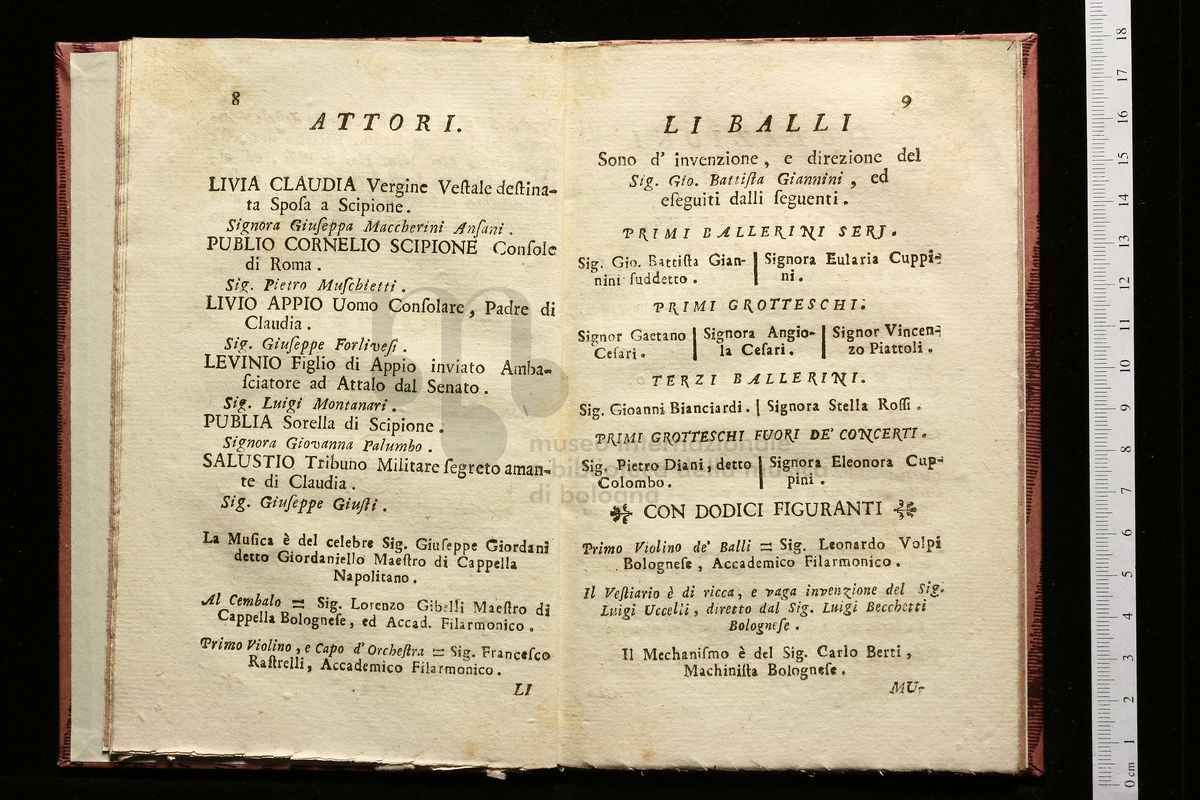 8
ATTORI.
LIVIA CLAUDIA Vergine Veſtale deſtina-
ta Spoſa a Scipione.
Signora Giuſeppa Maccherini Anſani.
PUBLIO CORNELIO SCIPIONE Conſole
di Roma.
Sig. Pietro Muſchietti.
LIVIO APPIO Uomo Conſolare, Padre di
Claudia.
Sig. Giuſeppe Forliveſi.
LEVINIO Figlio di Appio inviato Amba-
ſciatore ad Attalo dal Senato.
Sig. Luigi Montanari.
PUBLIA Sorella di Scipione.
Signora Giovanna Palumbo.
SALUSTIO Tribuno Militare ſegreto aman-
te di Claudia.
Sig. Giuſeppe Giuſti.
La Muſica è del celebre Sig. Giuſeppe Giordani
detto Giordaniello Maeſtro di Cappella
Napolitano.
Al Cembalo = Sig. Lorenzo Gibelli Maeſtro di
Cappella Bologneſe, ed Accad. Filarmonico.
Primo Violino, e Capo d'Orcheſtra = Sig. Franceſco
Raſtrelli, Accademico Filarmonico.
LI
9
LI BALLI
Sono d' invenzione, e direzione del
Sig. Gio. Battiſta Giannini, ed
eſeguiti dalli ſeguenti.
PRIMI BALLERINI SERJ.
Sig. Gio. Battiſta Gian- | Signora Eularia Cuppi-
nini ſuddetto. | ni.
PRIMI GROTTESCHI.
Signor Gaetano | Signora Angio- | Signor Vincen-
Ceſari. | la Ceſari. | zo Piattoli.
TERZI BALLERINI.
Sig. Gioanni Bianciardi. | Signora Stella Roſſi.
PRIMI GROTTESCHI FUORI DE' CONCERTI.
Sig. Pietro Diani, detto | Signora Eleonora Cup-
Colombo. | pini.
CON DODICI FIGURANTI
Primo Violino de' Balli = Sig. Leonardo Volpi
Bologneſe, Accademico Filarmonico.
Il Veſtiario è di ricca, e vaga invenzione del Sig.
Luigi Uccelli, diretto dal Sig. Luigi Becchetti
Bologneſe.
Il Mechaniſmo è del Sig. Carlo Berti,
Machiniſta Bologneſe.
MU-
museo internazionale
e biblioteca della musica
di bologna
18
17
16
15
14
13
12
11
10
9
8
7
6
5
4
3
2
1
0 cm